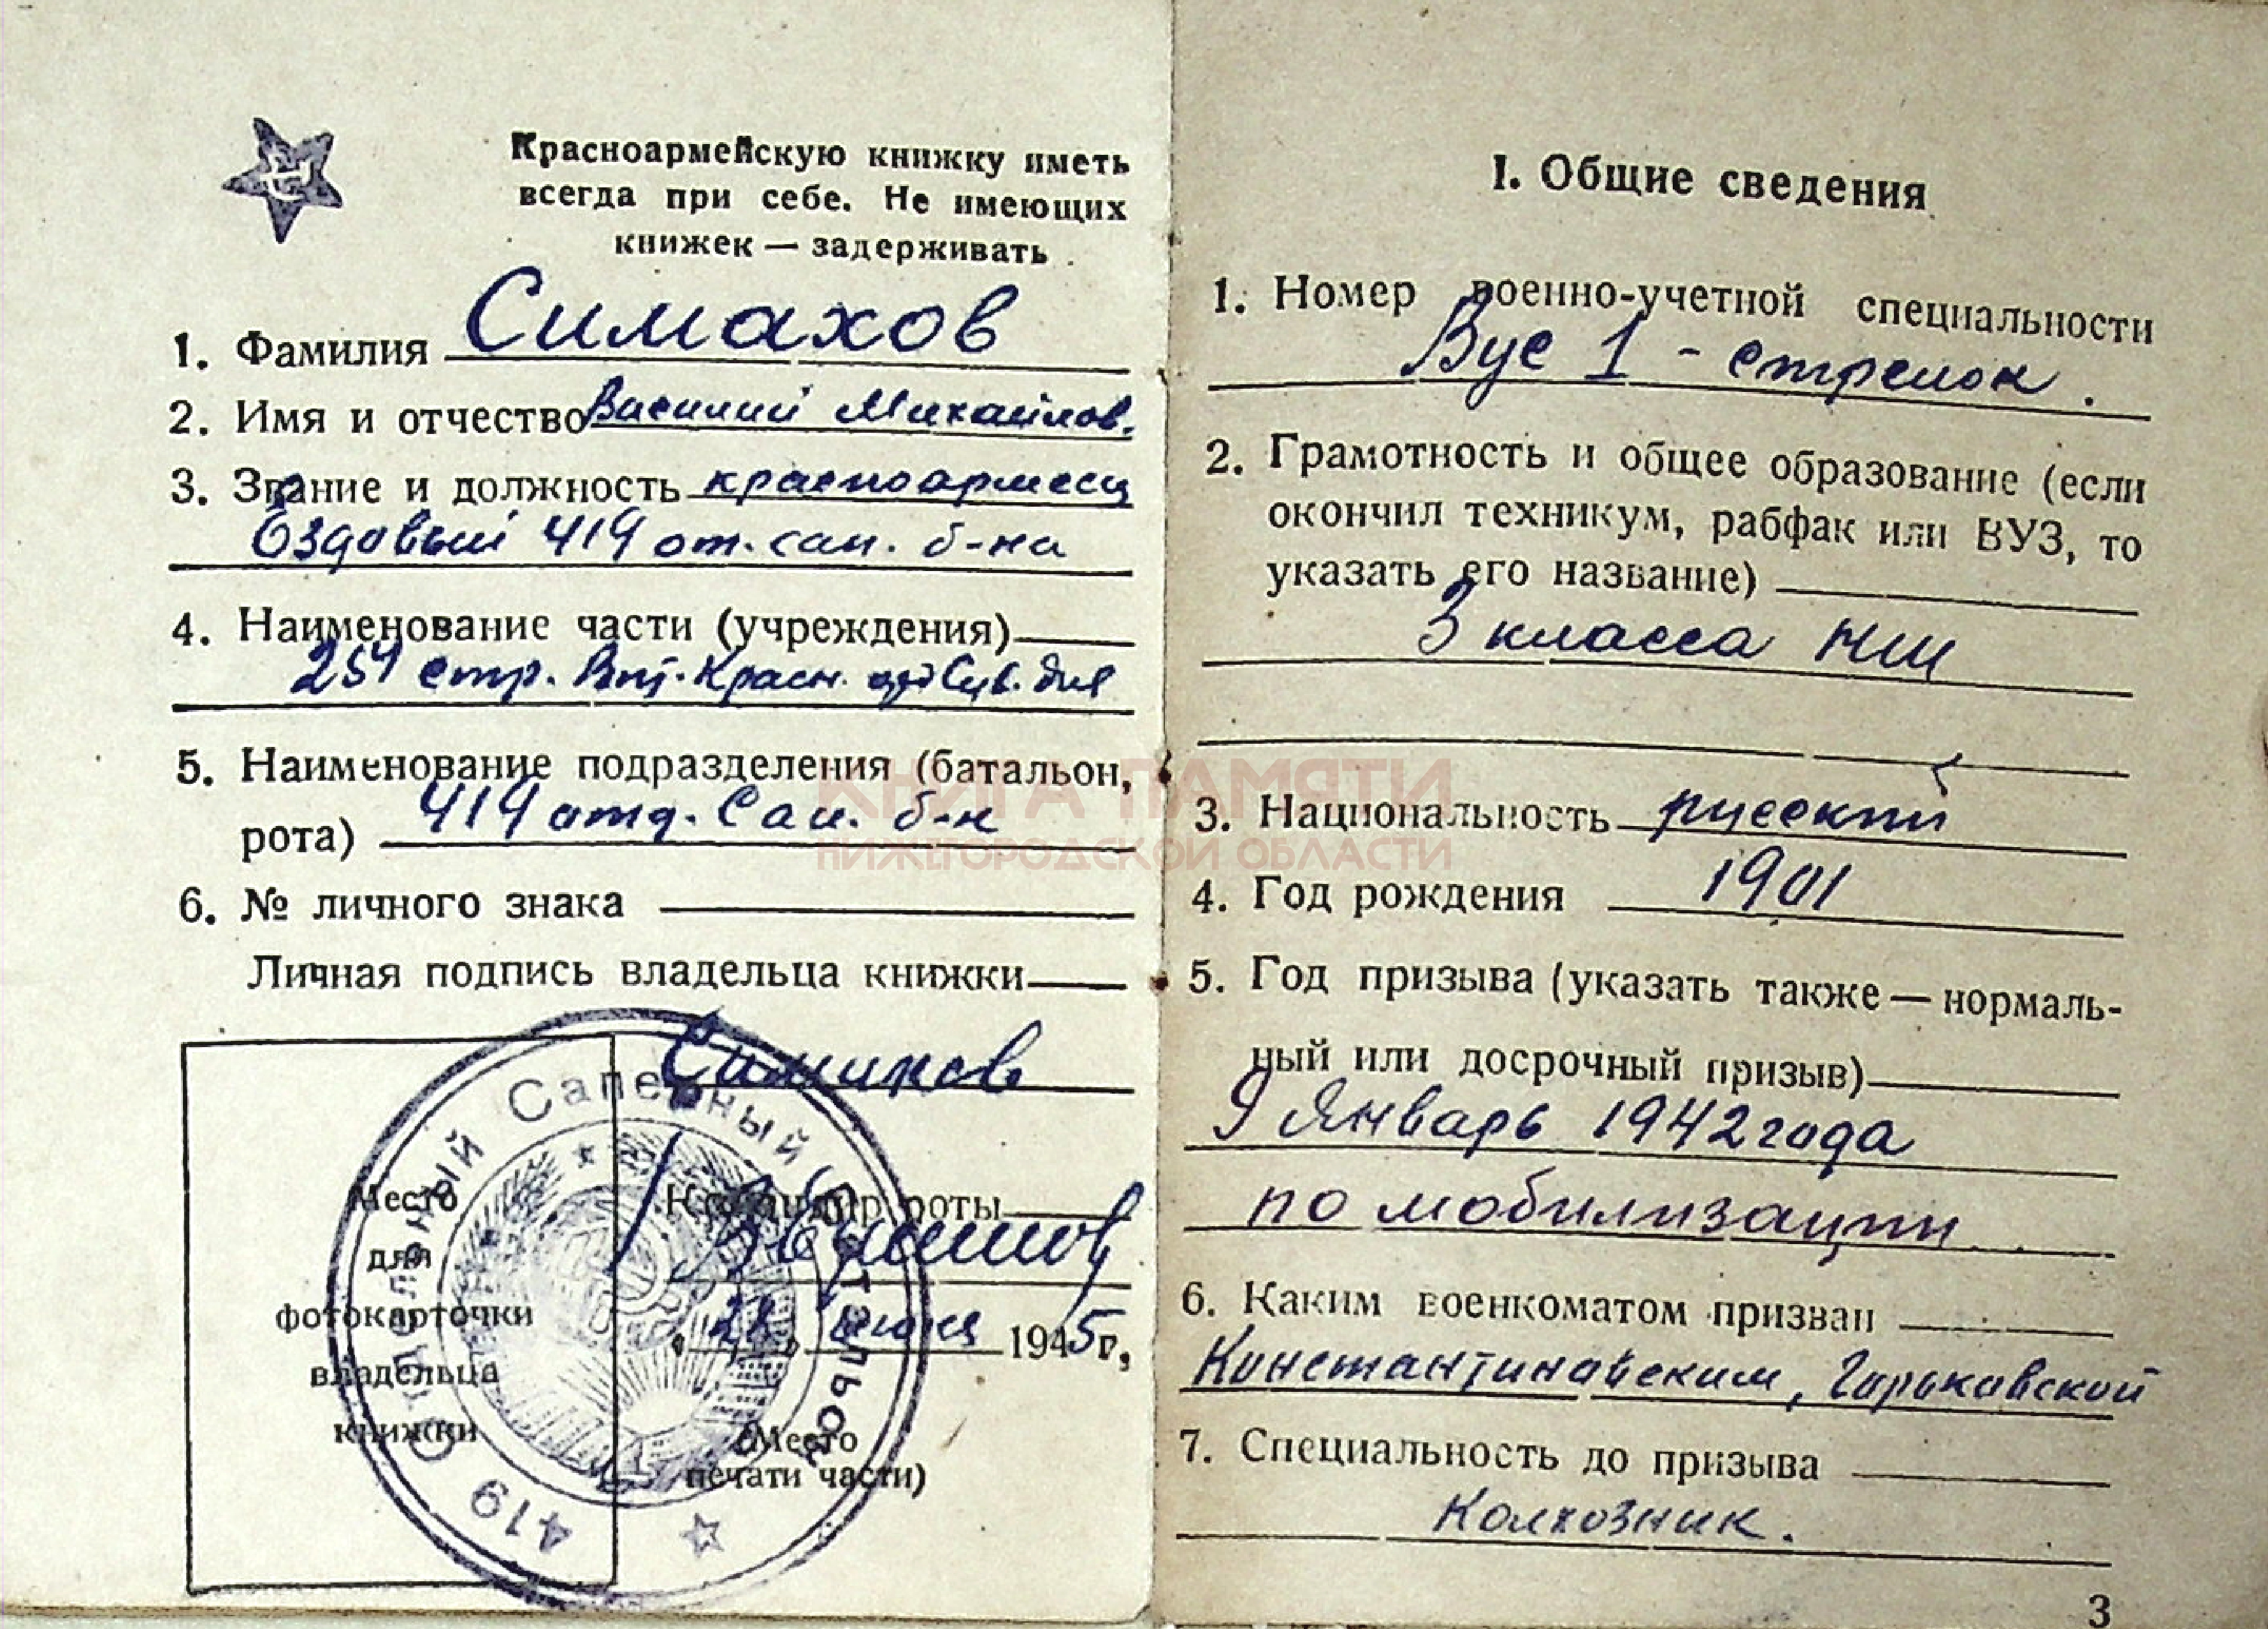 Красноармейскую книжку иметь
всегда при себе. Не имеющих
книжек — задерживать
1. Фамилия Симахов
2. Имя и отчество Василий Михайлов.
3. Звание и должность красноармеец
Ездовый 419 от. сап. б-на
4. Наименование части (учреждения)
254 стр. Красн.
5. Наименование подразделения (батальон,
рота) 419 отд. Сап. б-н
6. № личного знака
Личная подпись владельца книжки
Симахов
Командир роты
28 июня 1945 г.
Место
для
фотокарточки
владельца
книжки
(Место
печати части)
419 Отдельный Саперный Батальон
I. Общие сведения
1. Номер военно-учетной специальности
Вус 1 - стрелок.
2. Грамотность и общее образование (если
окончил техникум, рабфак или ВУЗ, то
указать его название)
3 класса НШ
3. Национальность русский
4. Год рождения 1901
5. Год призыва (указать также — нормаль-
ный или досрочный призыв)
9 Январь 1942 года
по мобилизации
6. Каким военкоматом призван
Константиновским, Горьковской
7. Специальность до призыва
Колхозник.
3
КНИГА ПАМЯТИ
НИЖЕГОРОДСКОЙ ОБЛАСТИ